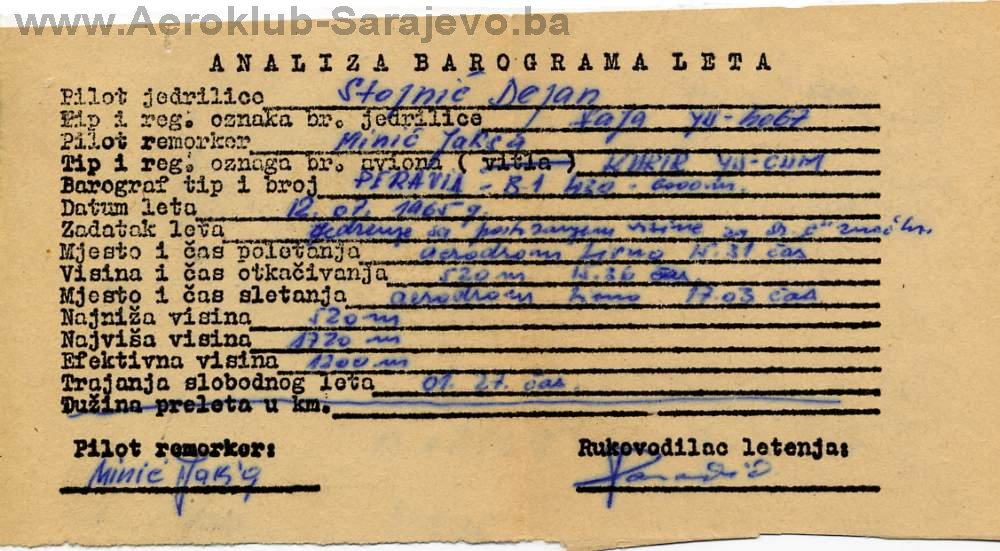 www.Aeroklub-Sarajevo.ba
ANALIZA BAROGRAMA LETA
Pilot jedrilice Stojnić Dejan
Tip i reg. oznaka br. jedrilice
Pilot remorker Minić Jakša
Tip i reg. oznaga br. aviona ( vitla ) KURIR YU-CDM
Barograf tip i broj PERAVIA - B-1
Datum leta 1965 g.
Zadatak leta jedrenje sa visine
Mjesto i čas poletanja aerodrom 15.31 čas
Visina i čas otkačivanja 520 m 15.36 čas.
Mjesto i čas sletanja aerodrom 17.03 čas
Najniža visina 520 m
Najviša visina 1720 m
Efektivna visina 1200 m
Trajanja slobodnog leta 01. 27. čas.
Dužina preleta u km.
Pilot remorker: Rukovodilac letenja:
Minić Jakša